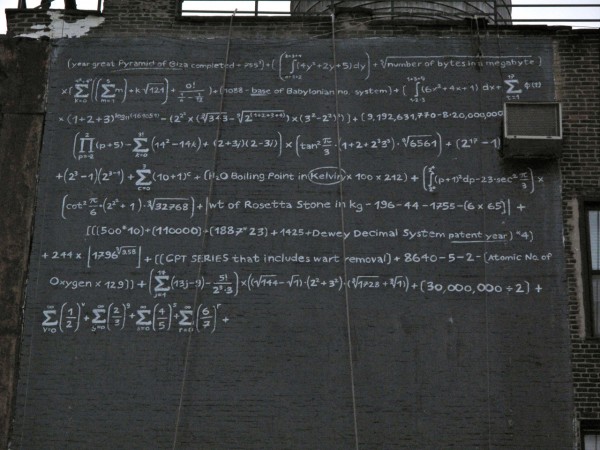 (year great Pyramid of Giza completed + 255²) + ( ∫(4y³+2y+5)dy) + ³√number of bytes in a megabyte )
×( Σ ((Σm)+k·√121) + 0!/ ) + (1088 - base of Babylonian no. system) + ( ∫(6x²+4x+1) dx + Σ
× (1+2+3) - (2² × ( × (3²-2²)) + (9,192,631,770-8·20,000,000
(∏(p+5) - Σ(14²-14k) + (2+3i)(2-3i)) × (tan² π/3 · (1+2+2³3²) · √6561) + (2¹⁷-1)
+(2³-1)(2³-1) + Σ(10+1)ᶜ + (H₂O Boiling Point in Kelvin × 100 × 212) + ( ∫(p+1)³dp-23·sec² π/3) ×
(cot² π/6 + (2²+1)·√32768) + |wt of Rosetta Stone in kg - 196-44-1755-(6×65)| +
[[(500*10)+(110000)+(1887*23) + 1425+Dewey Decimal System patent year)*4)
+ 244 × |1796 | + [(CPT SERIES that includes wart removal) + 8640-5-2-(Atomic No. of
Oxygen × 129)] + (Σ(13j-9) - 5!/2²·3) × ((√144-√1)·(2²+3²)·(³√1728+³√1)) + (30,000,000÷2) +
Σ(1/2)ᵛ + Σ(2/3)ˢ + Σ(4/5)ᶻ + Σ(6/7)ʳ +